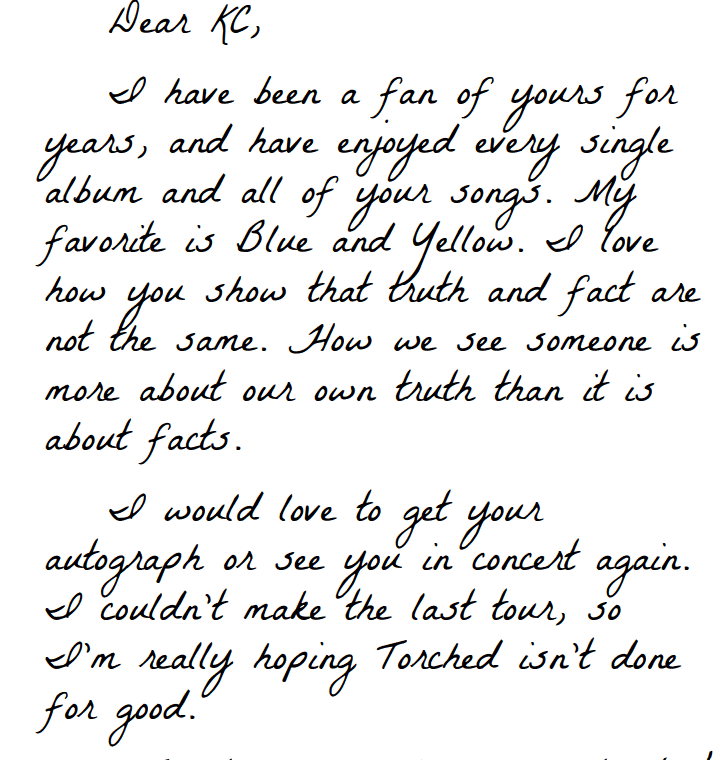 Dear KC,
I have been a fan of yours for
years, and have enjoyed every single
album and all of your songs. My
favorite is Blue and Yellow. I love
how you show that truth and fact are
not the same. How we see someone is
more about our own truth than it is
about facts.
I would love to get your
autograph or see you in concert again.
I couldn't make the last tour, so
I'm really hoping Torched isn't done
for good.